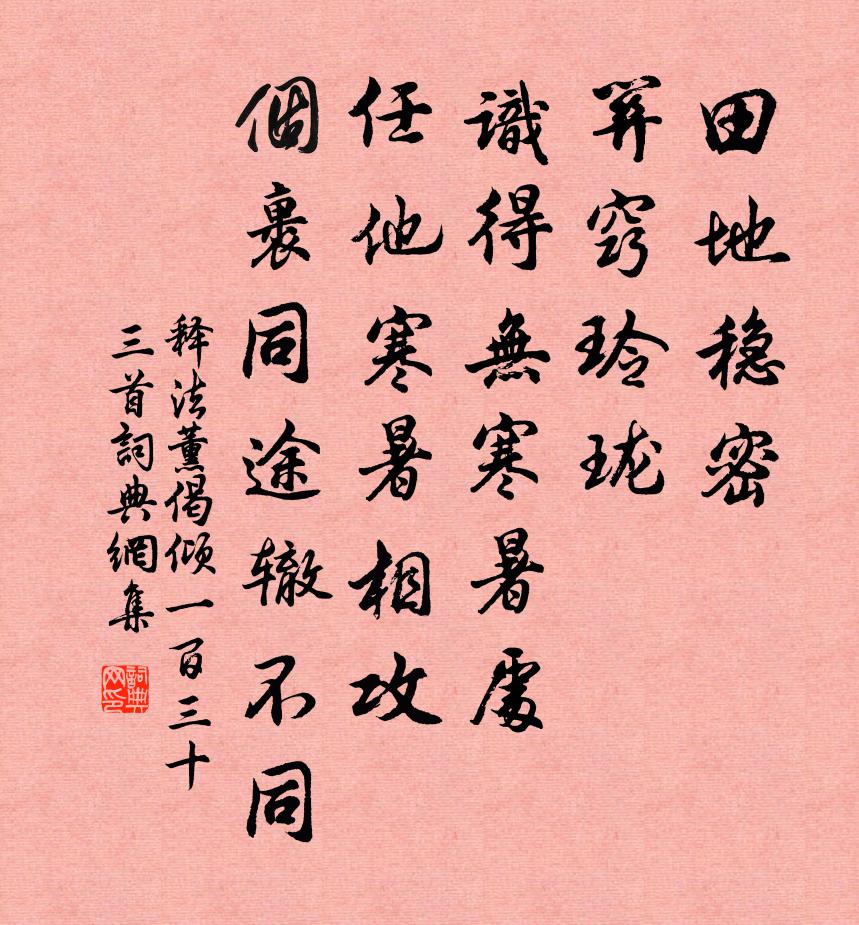 田地稳密
窍玲珑
識得無寒暑處
任他寒暑相攻
個裏同途辙不同
释法薰偈倾一百三十
三首詞典網集
詞典网印